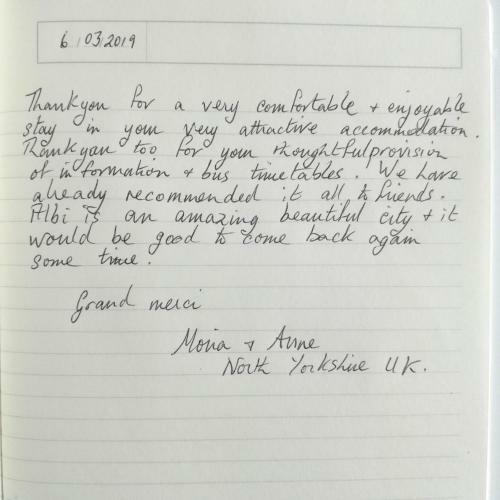 6 03 2019
Thankyou for a very comfortable + enjoyable
stay in your very attractive accommodation.
Thankyou too for your thoughtful provision
of information + bus timetables. We have
already recommended it all to friends.
Albi is an amazing beautiful city + it
would be good to come back again
some time.
Grand merci
Moira + Anne
North Yorkshire UK.